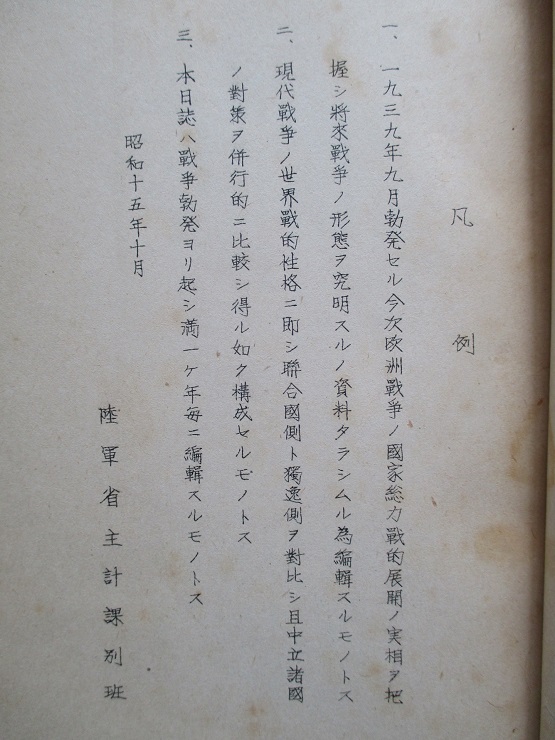 凡例
一、一九三九年九月勃発セル今次欧洲戦争ノ國家総力戰的展開ノ実相ヲ把
握シ將來戰爭ノ形態ヲ究明スルノ資料タラシムル為編輯スルモノトス
二、現代戰爭ノ世界戰的性格ニ即シ聯合國側ト獨逸側ヲ對比シ且中立諸國
ノ對策ヲ併行的ニ比較シ得ル如ク構成セルモノトス
三、本日誌ハ戰爭勃発ヨリ起シ満一ケ年毎ニ編輯スルモノトス
昭和十五年十月
陸軍省主計課別班